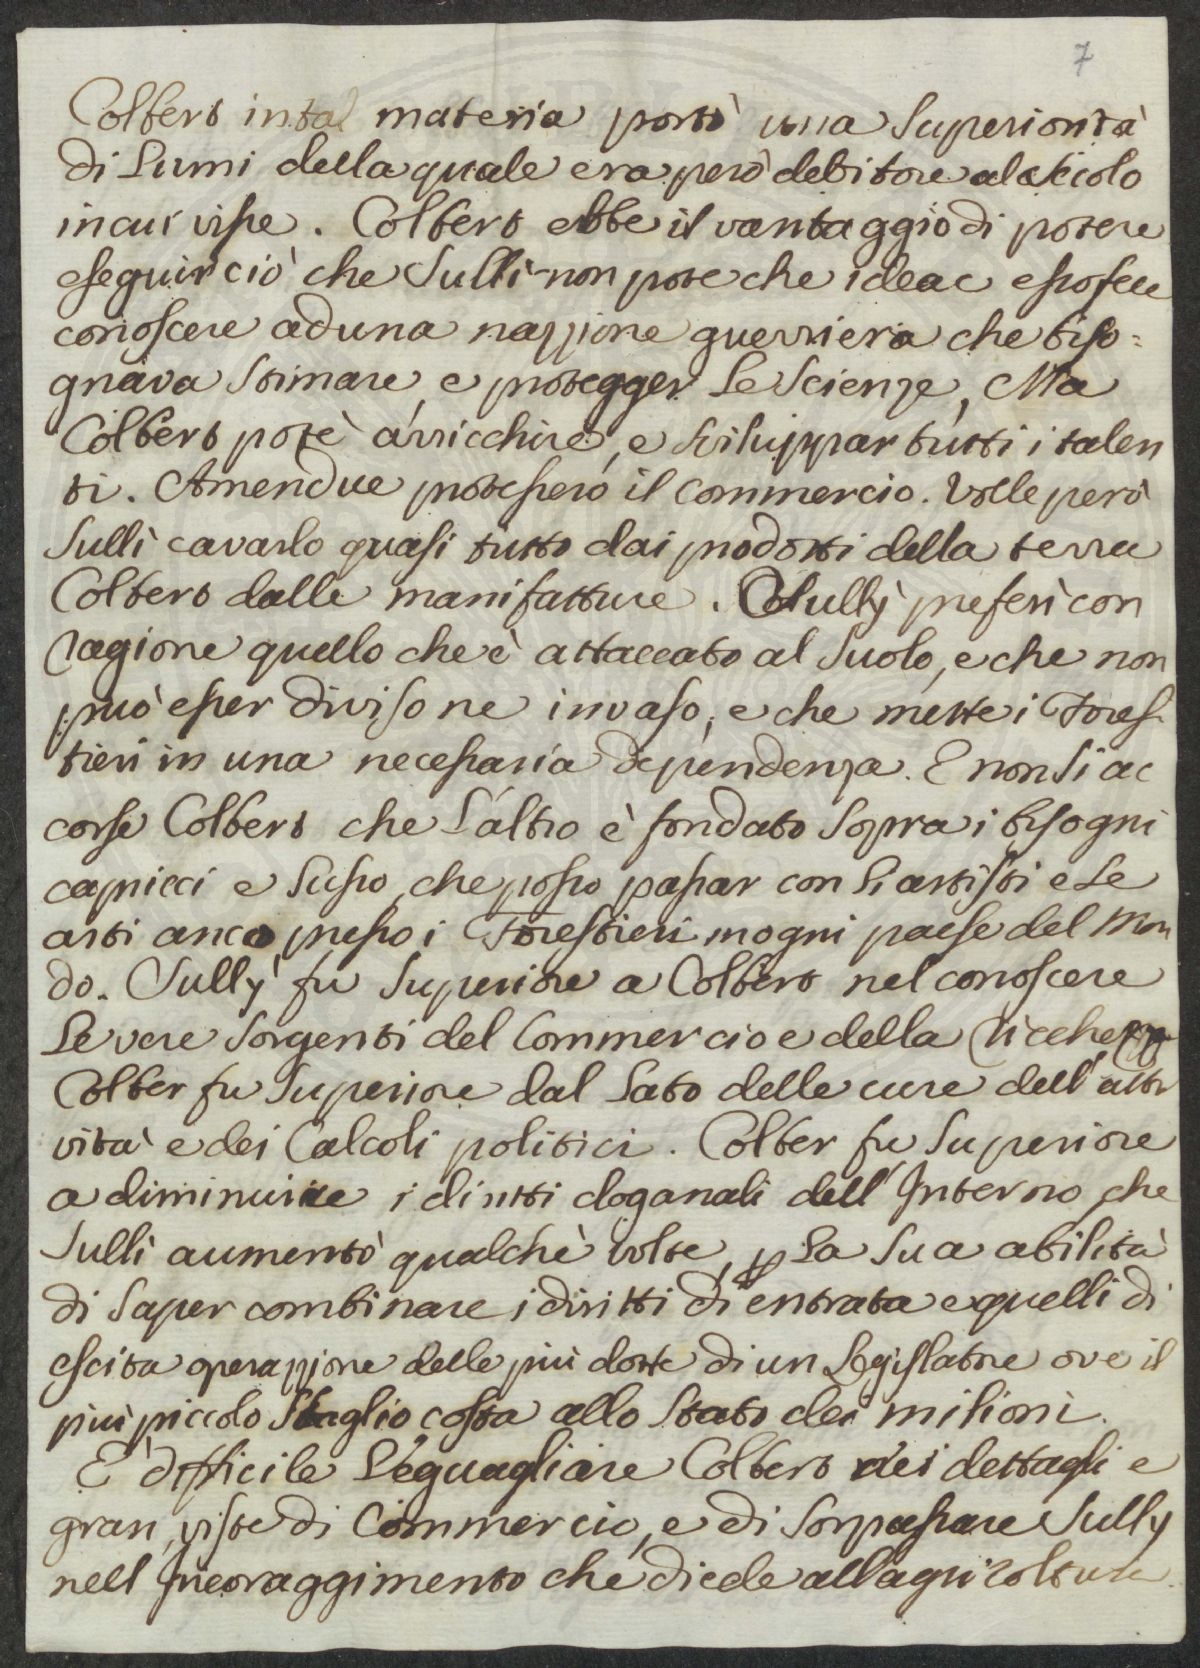 7
Colbert in tal materia portò una Superiorità
di Lumi della quale era però debitore al secolo
in cui visse. Colbert ebbe il vantaggio di potere
eseguir ciò che Sullì non pote che idear e fece
conoscere ad una nazzione guerriera che biso=
gnava Stimare, e protegger Le Scienze, Ma
Colbert potè arricchire, e Sviluppar tutti i talen
ti. Amendue protessero il Commercio. Volle però
Sullì cavarlo quasi tutto dai prodotti della terra
Colbert dalle manifatture. Sullÿ preferì con
ragione quello che è attaccato al Suolo, e che non
può esser diviso ne invaso, e che mette i Fores
tieri in una necessaria dependenza. E non Si ac
corse Colbert che L'altro è fondato Sopra i bisogni
capricci e Lusso, che posso passar con Li artisti e Le
arti anco presso i Forestieri in ogni paese del Mon
do. Sullÿ fu Superiore a Colbert nel conoscere
Le vere Sorgenti del Commercio e della Ricchezza
Colber fu Superiore dal Lato delle cure dell'atti
vità e dei Calcoli politici. Colber fu Superiore
a diminuire i diritti doganali dell'Interno che
Sullì aumentò qualche volte, p La Sua abilità
di Saper combinare i diritti di entrata e quelli di
escita operazzione delle più dotte di un Legislatore ove il
più piccolo Sbaglio costa allo Stato dei milioni.
E' difficile L'eguagliare Colbert nei dettagli e
gran viste di Commercio, e di Sorpassare Sully
nell Incoraggimento che diede all'agricoltura